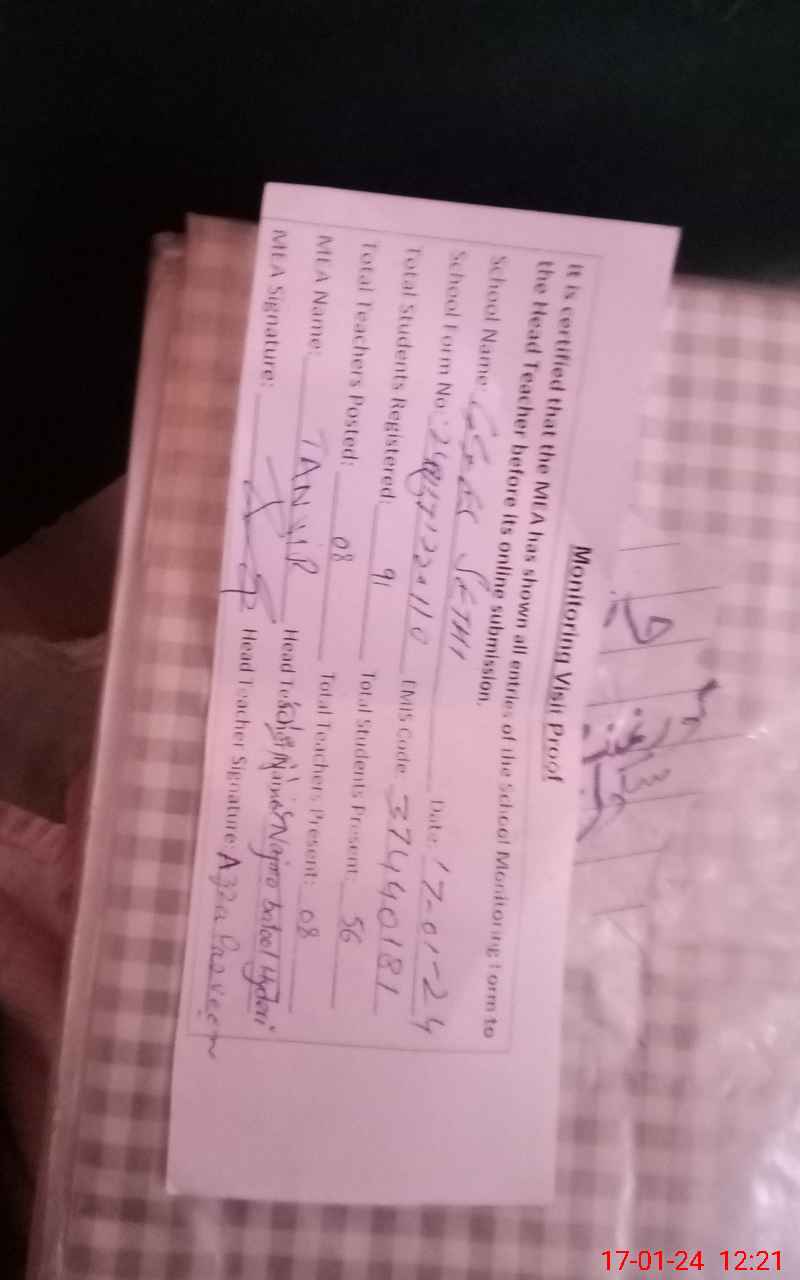 Monitoring Visit Proof
It is certified that the MEA has shown all entries of the School Monitoring Form to
the Head Teacher before its online submission.
School Name: SETHI Date: 17-01-24
School Form No: EMIS Code: 37440181
Total Students Registered: 91 Total Students Present: 56
Total Teachers Posted: 08 Total Teachers Present: 08
MEA Name: TANVIR Head Teacher Name: Najma batool Hydari
MEA Signature: Head Teacher Signature: Azra Parveen
17-01-24 12:21